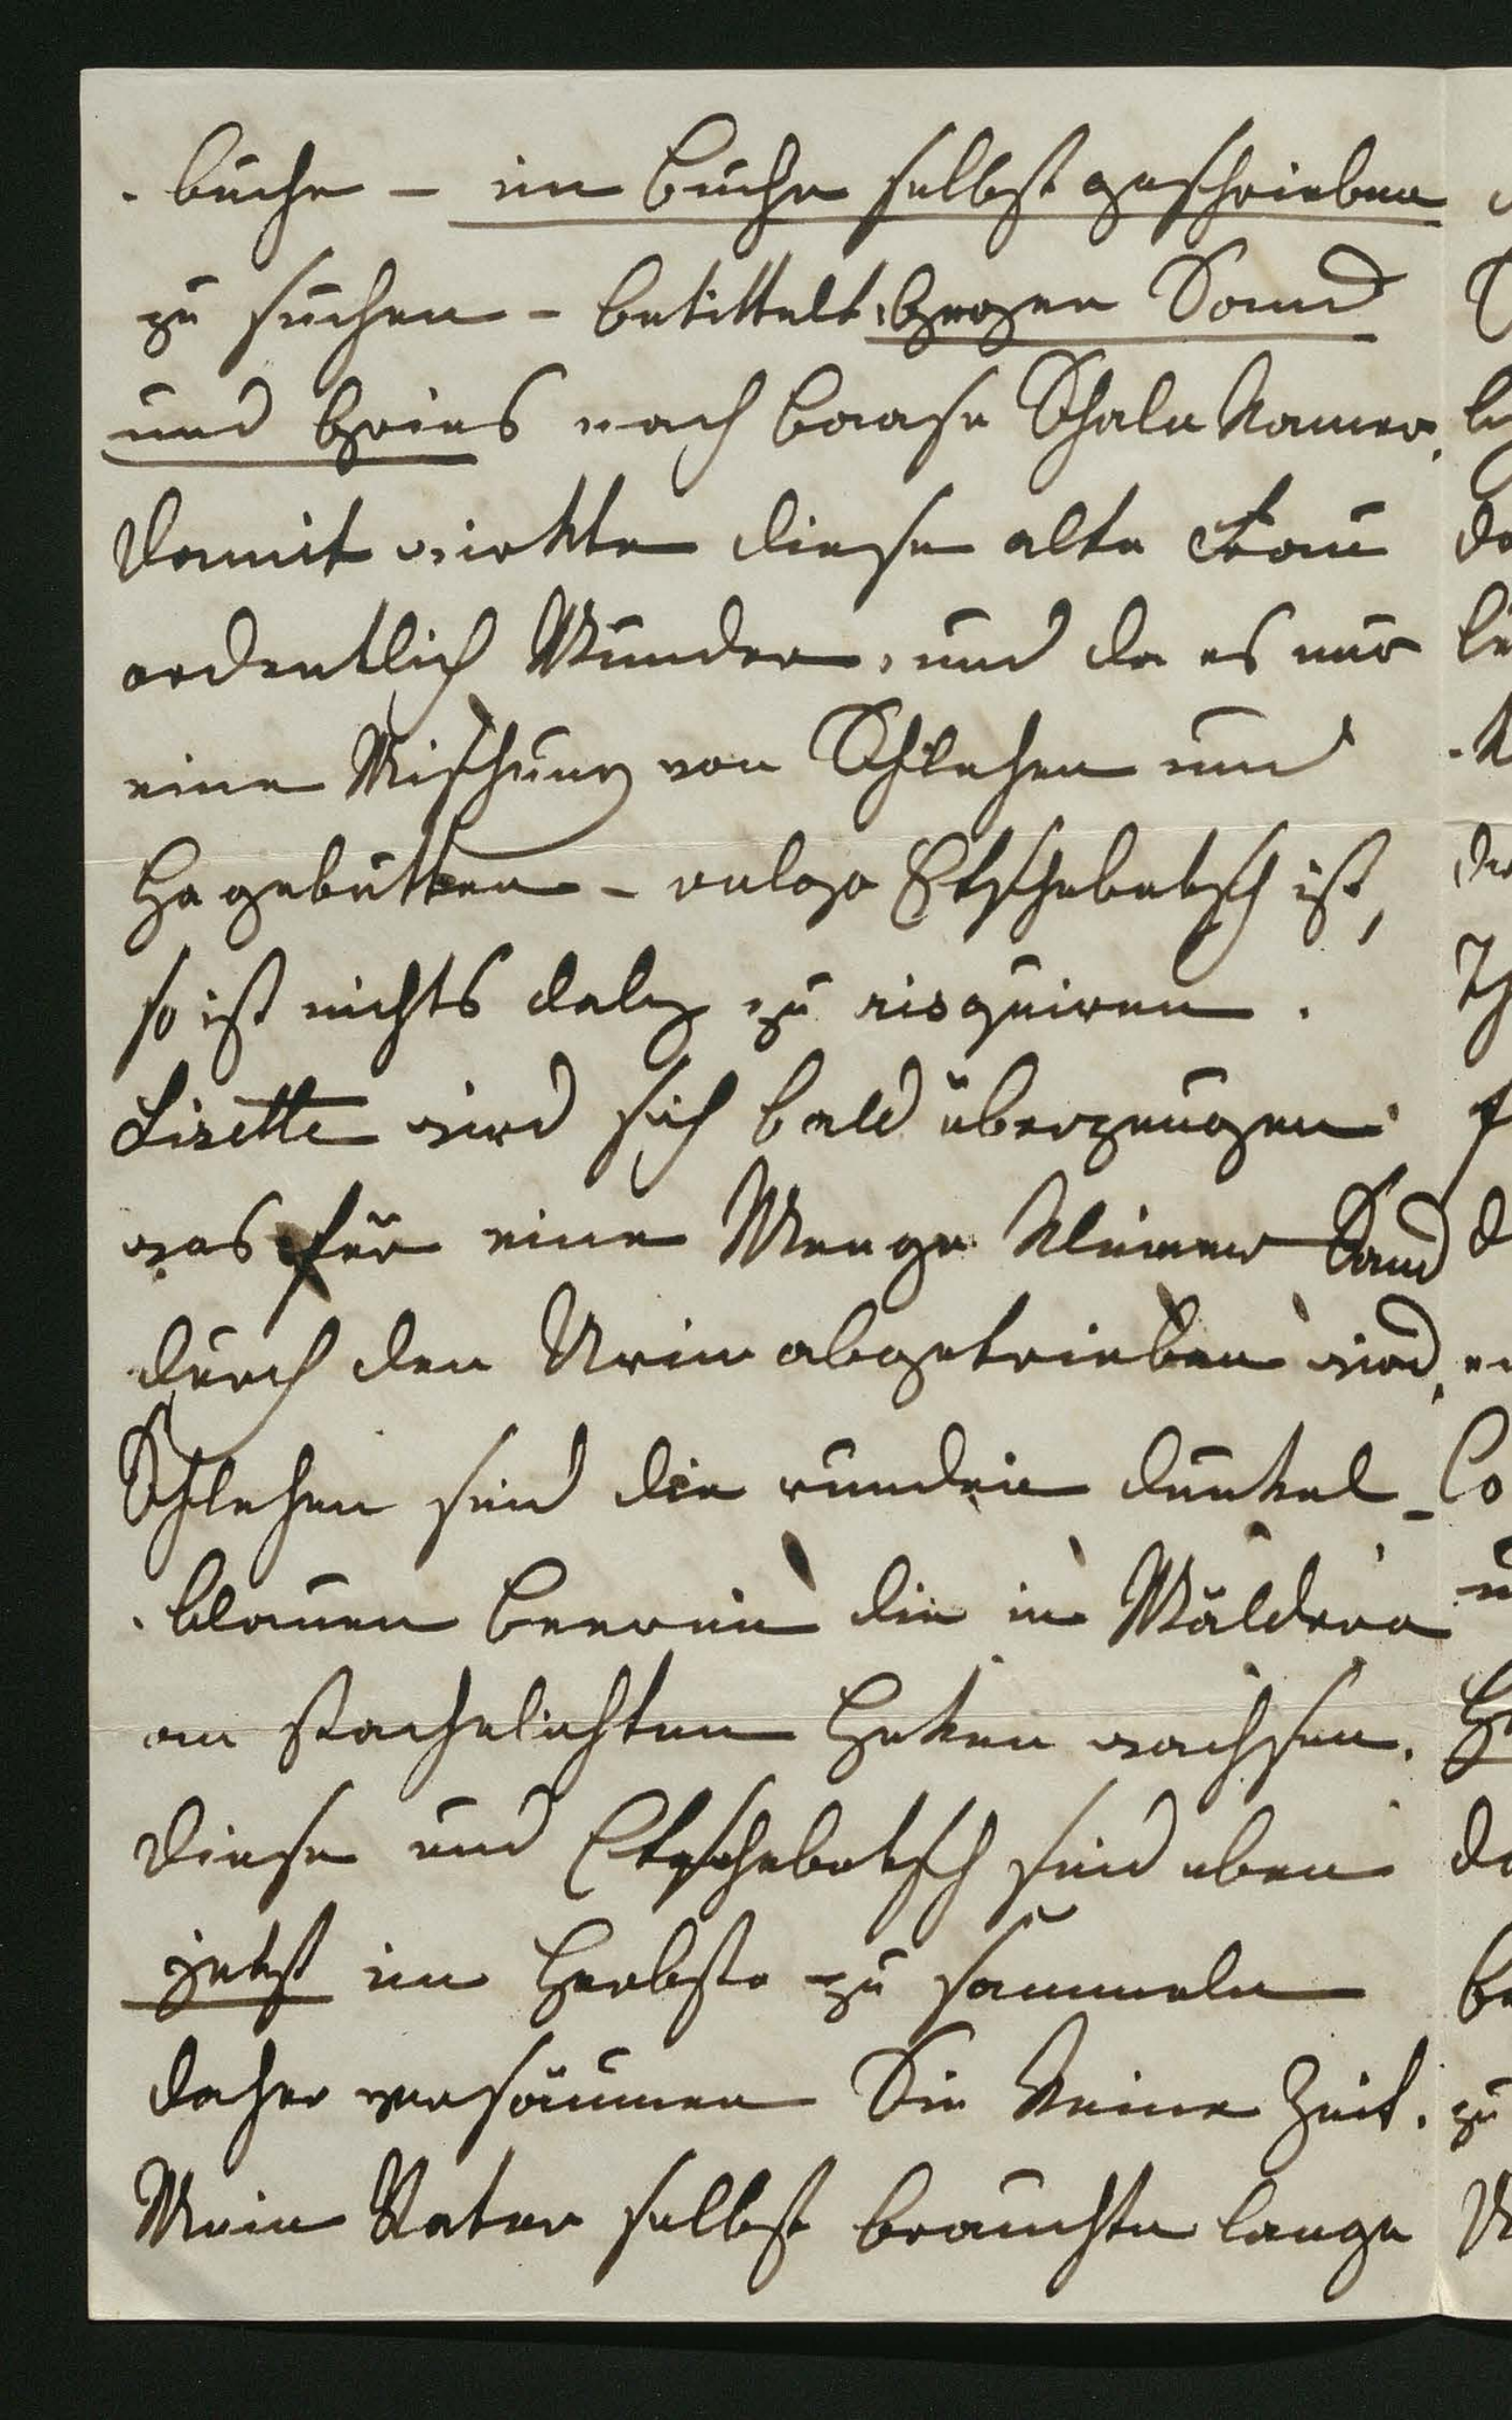 -buche – im Buche selbst geschrieben
zu suchen – betittelt, Gegen Sand
und Gries nach Baase Schale Namer.
Damit wirkte diese alte Frau
ordentlich Wunder, und da es nur
eine Mischung von Schlehen und
Hagebutten – vulgo Etschebetsch ist,
so ist nichts dabey zu risquiren.
Lisette wird sich bald überzeugen
was für eine Menge kleiner Sand
durch den Urin abgetrieben wird.
Schlehen sind die runden dunkel-
-blauen Beeren die in Wäldern
an stachelichten Heken wachsen.
Diese und Etschebetsch sind eben
jetzt im Herbste zu sammeln
daher versäumen Sie keine Zeit.
Mein Vater selbst brauchte lange